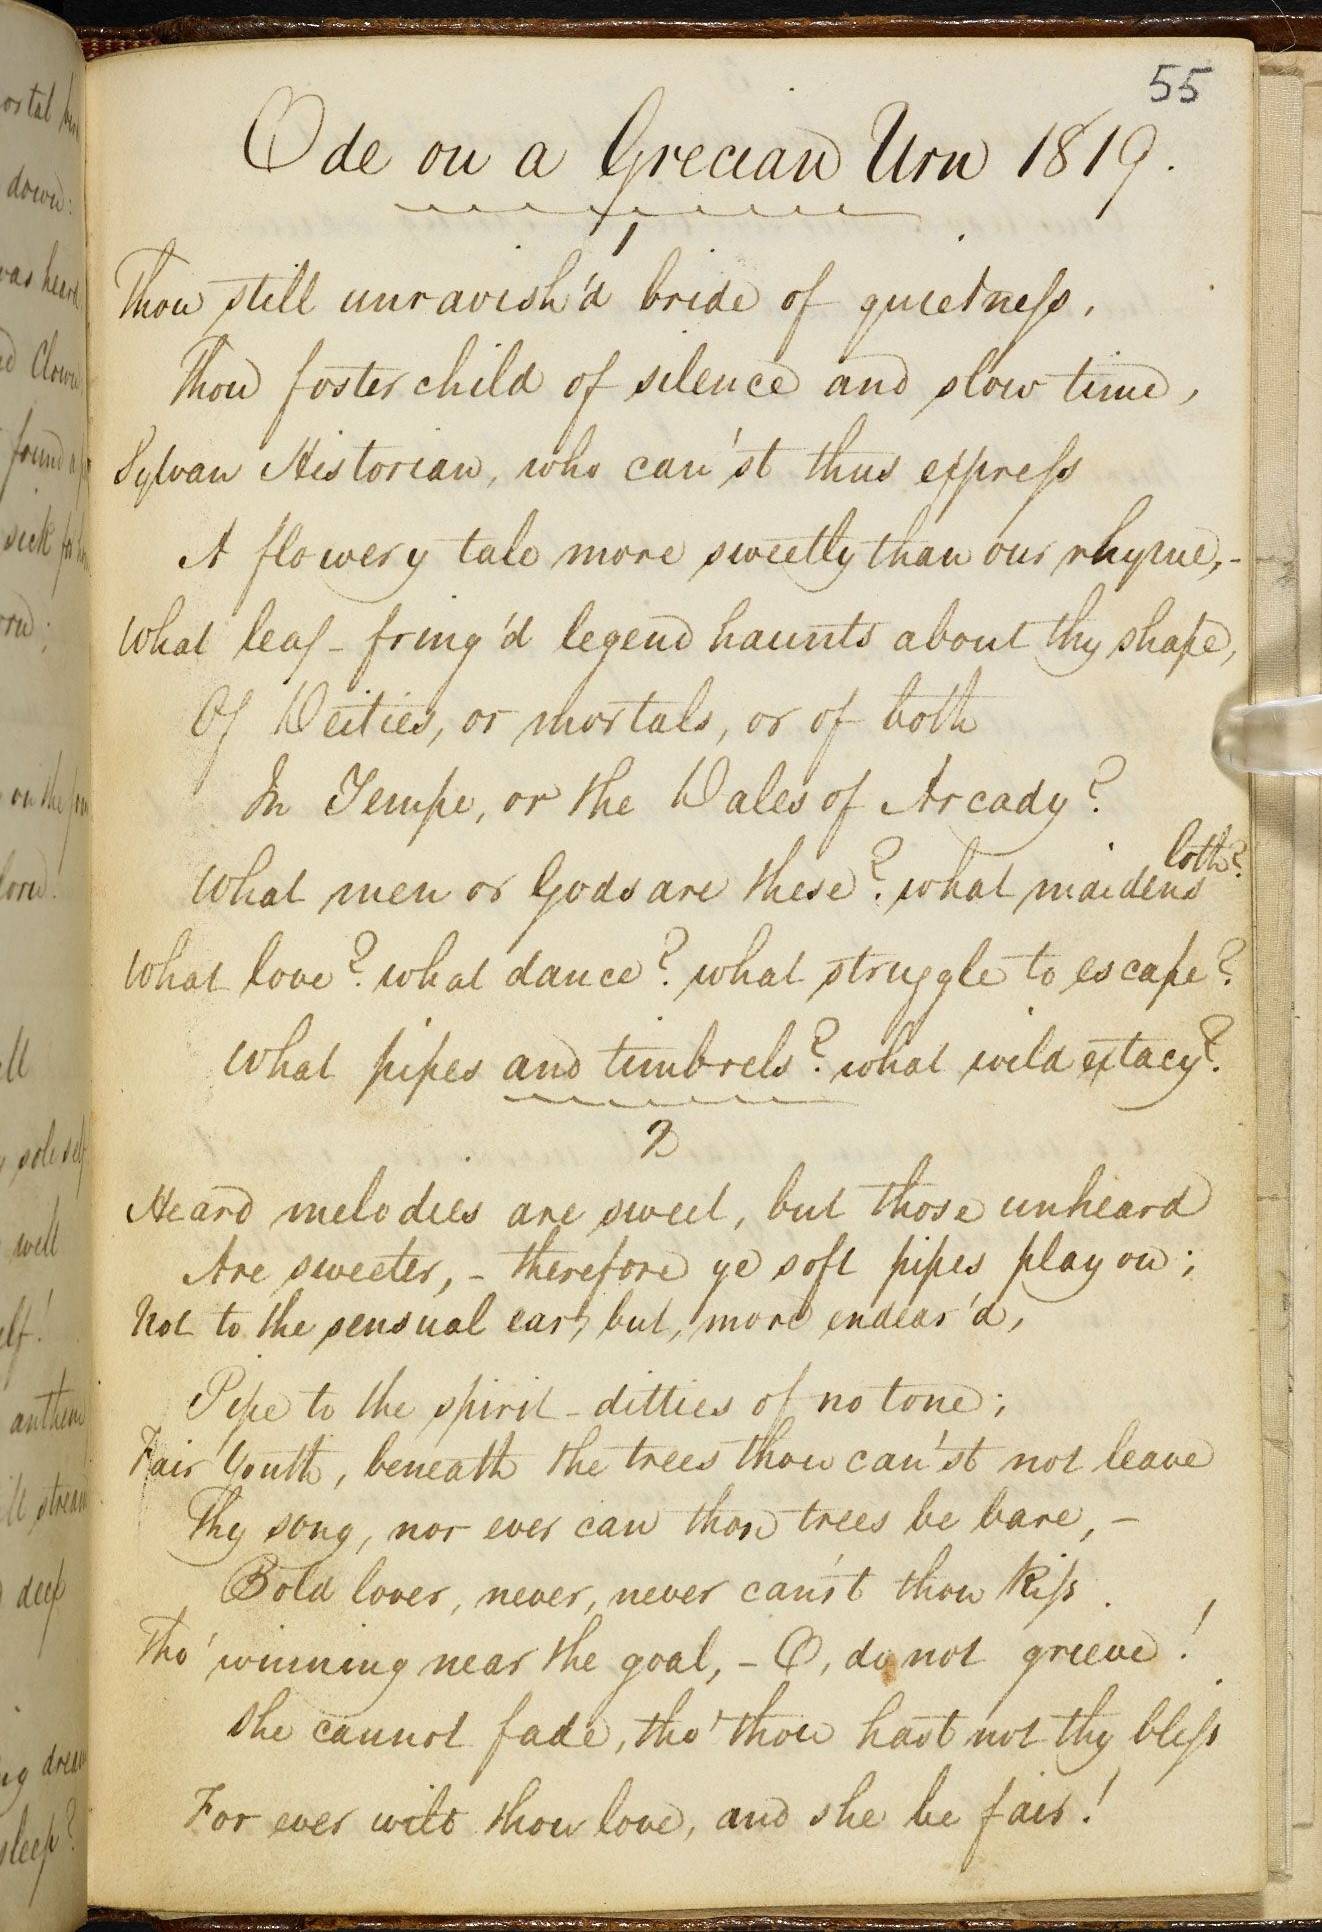 55
Ode on a Grecian Urn 1819.
1
Thou still unravish'd bride of quietness,
Thou foster child of silence and slow time,
Sylvan Historian, who can'st thus express
A flowery tale more sweetly than our rhyme,-
What leaf-fring'd legend haunts about thy shape,
Of Deities, or mortals, or of both
In Tempe, or the Dales of Arcady?
loth?
What men or Gods are these? what maidens
What love? what dance? what struggle to escape?
What pipes and timbrels? what wild extacy?
2
Heard melodies are sweet, but those unheard
Are sweeter,- therefore ye soft pipes play on;
Not to the sensual ear, but, more endear'd,
Pipe to the spirit-ditties of no tone;
Fair Youth, beneath the trees thou can'st not leave
Thy song, nor ever can those trees be bare,-
Bold lover, never, never can'st thou kiss
Tho' winning near the goal,- O, do not grieve!
She cannot fade, tho' thou hast not thy bliss
For ever wilt thou love, and she be fair!
down:
was heard
Clown
found a
sick for
on the
sole self
will
anthem
stream
deep
sleep?